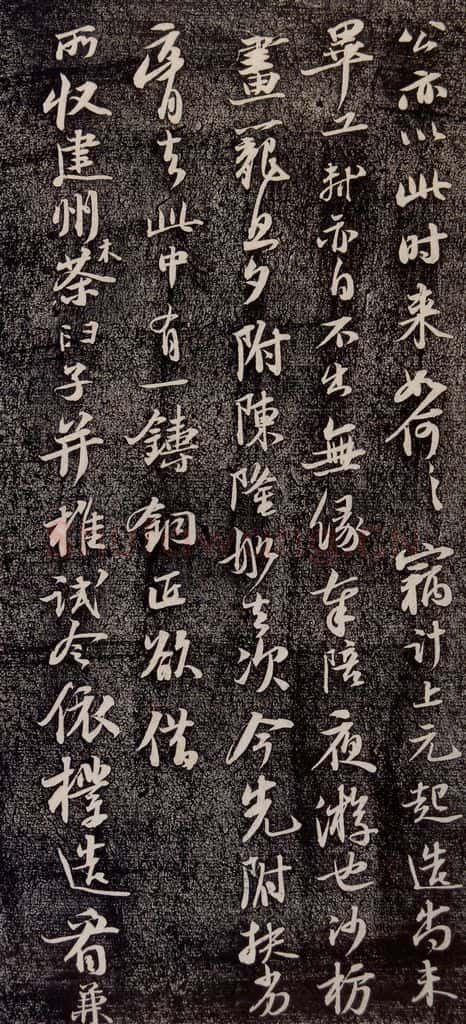 公亦以此时来如何々竊計上元起造尚未
畢工軾亦自不出無緣奉陪夜游也沙枋
畫籠旦夕附陳隆船去次今先附扶劣
膏去此中有一鑄銅匠欲借
所收建州木茶臼子并椎試令依樣造看兼